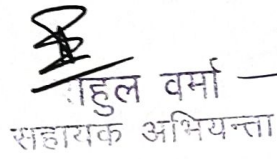 राहुल वर्मा
सहायक अभियन्ता